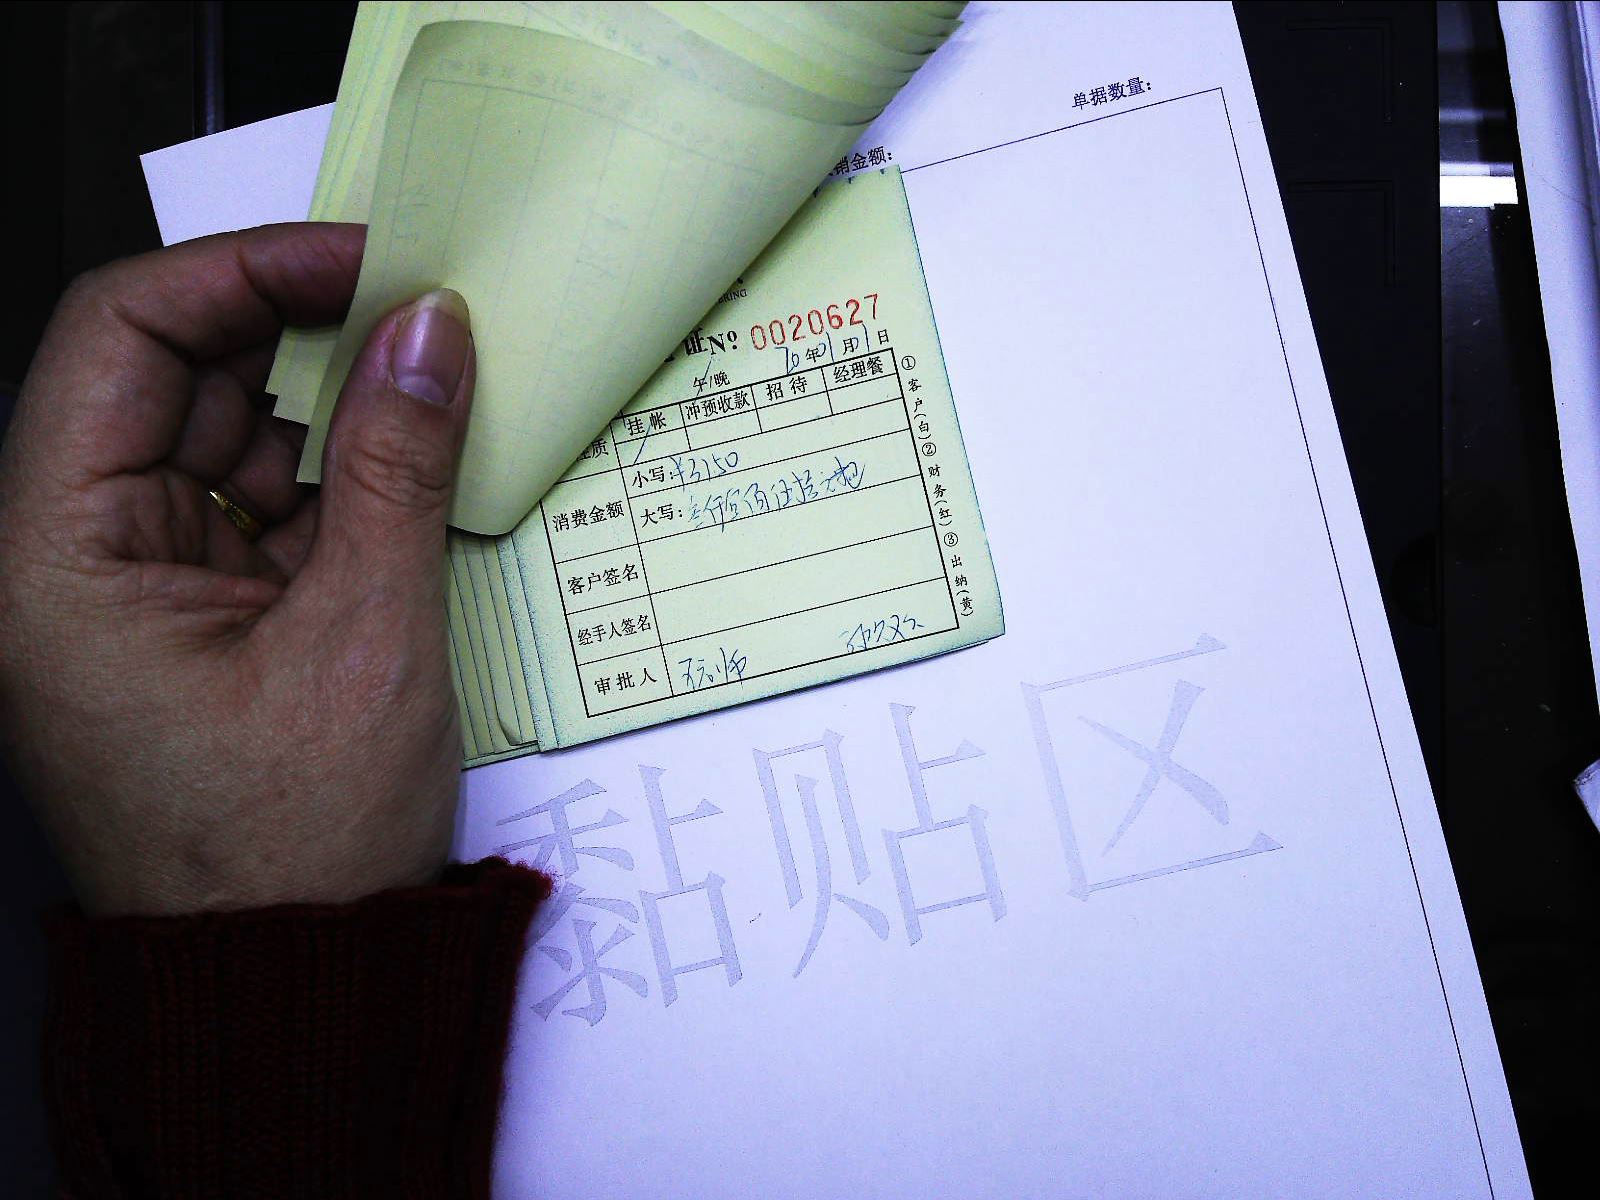 单据数量:
销金额:
证 No 0020627
20年01月01日
午/晚
挂帐 冲预收款 招待 经理餐
性质
消费金额 小写:¥3150
大写:叁仟壹佰伍拾元
客户签名
经手人签名
审批人
①客户(白)②财务(红)③出纳(黄)
黏贴区